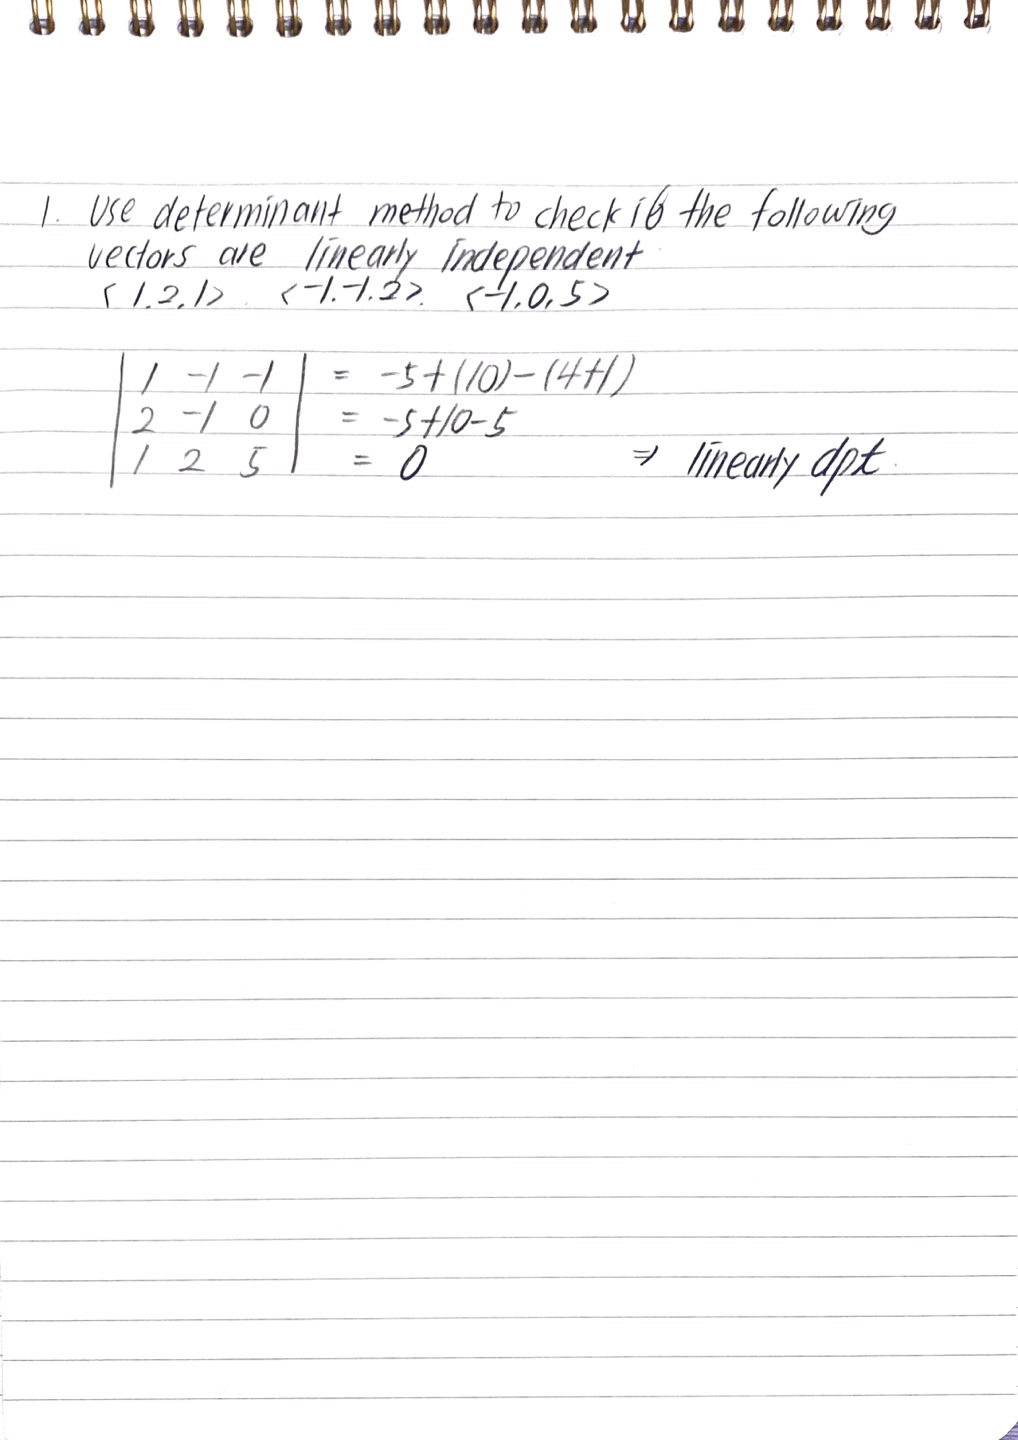 1. Use determinant method to check if the following
vectors are linearly independent
<1,2,1> . <-1,-1,2>. <-1,0,5>
| 1 -1 -1 | = -5+(10)-(4+1)
| 2 -1 0 | = -5+10-5
| 1 2 5 | = 0 ⇒ linearly dpt.